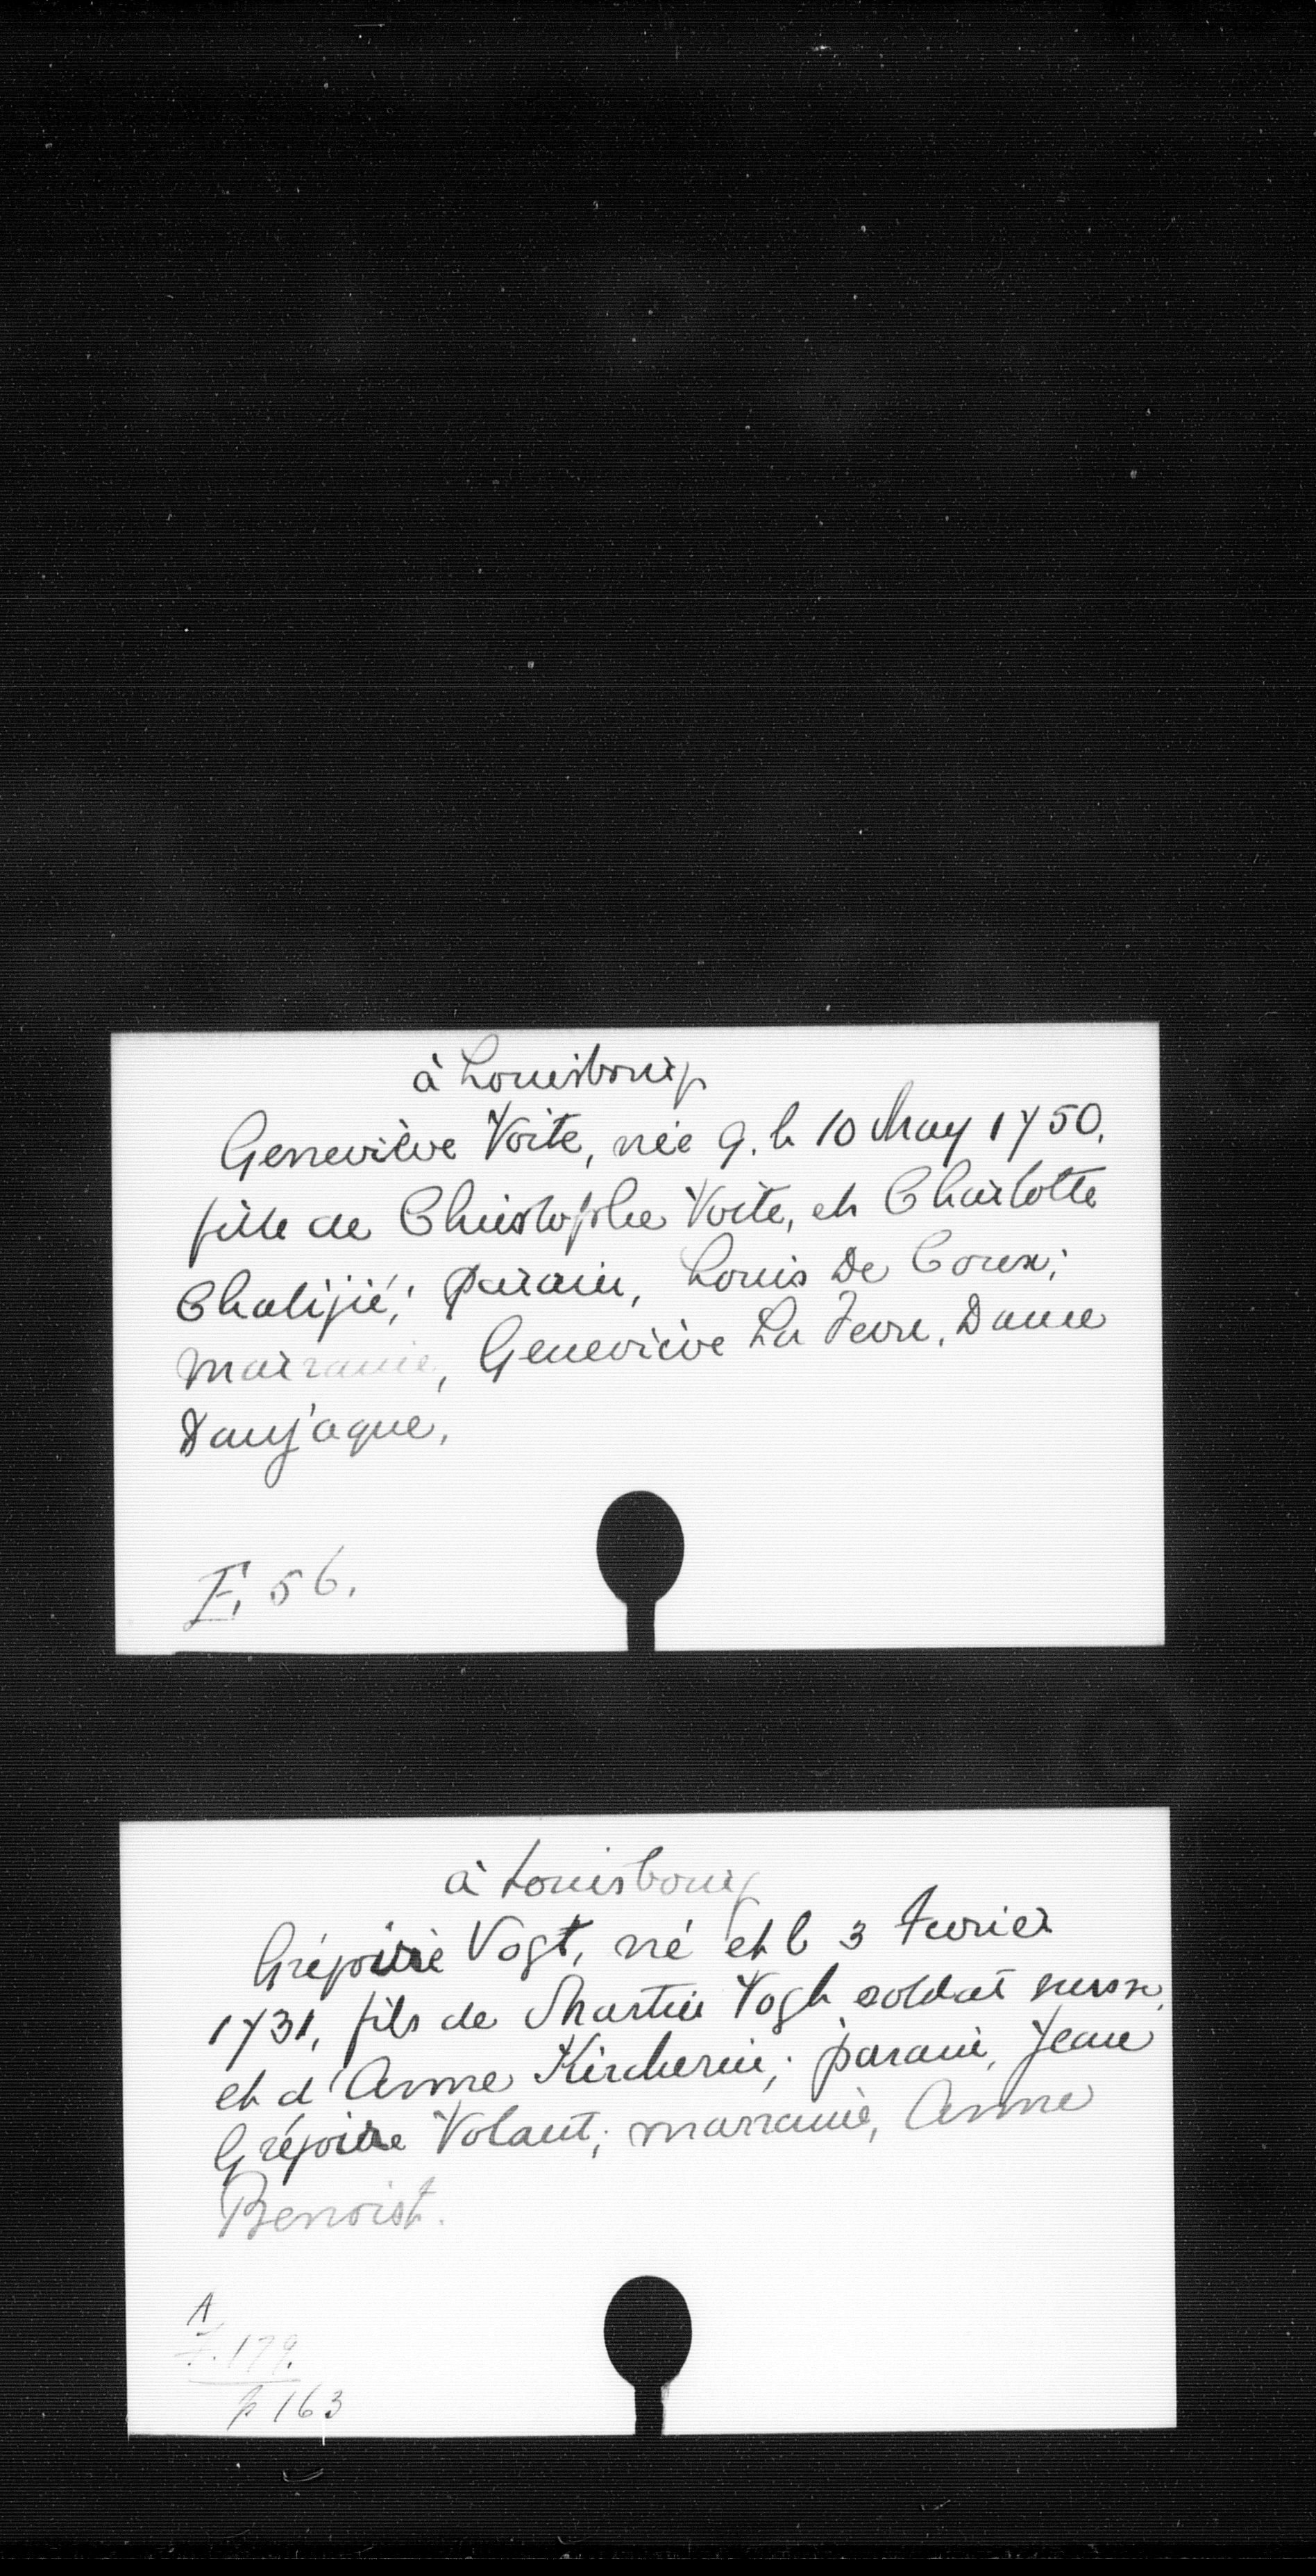 à Louisbourg
Geneviève Voite, née 9. b 10 May 1750.
fille de Christophe Voite, et Charlotte
Chalijié; parain, Louis De Coux;
marraine, Geneviève La Fevre, Dame
Danjaque.
E. 56.
à Louisbourg
Grégoire Vogt, né et b 3 fevrier
1731, fils de Martin Vogt soldat suisse,
et d'Anne Kircherin; parain, Jean
Grégoire Volant; marraine, Anne
Benoist.
A
F. 179.
p 163